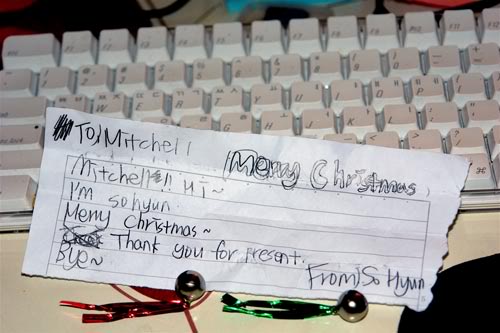 To) Mitchell
Merry Christmas
Mitchell!! Hi~
I'm sohyun.
Merry Christmas~
Thank you for present.
Bye~
From) So Hyun